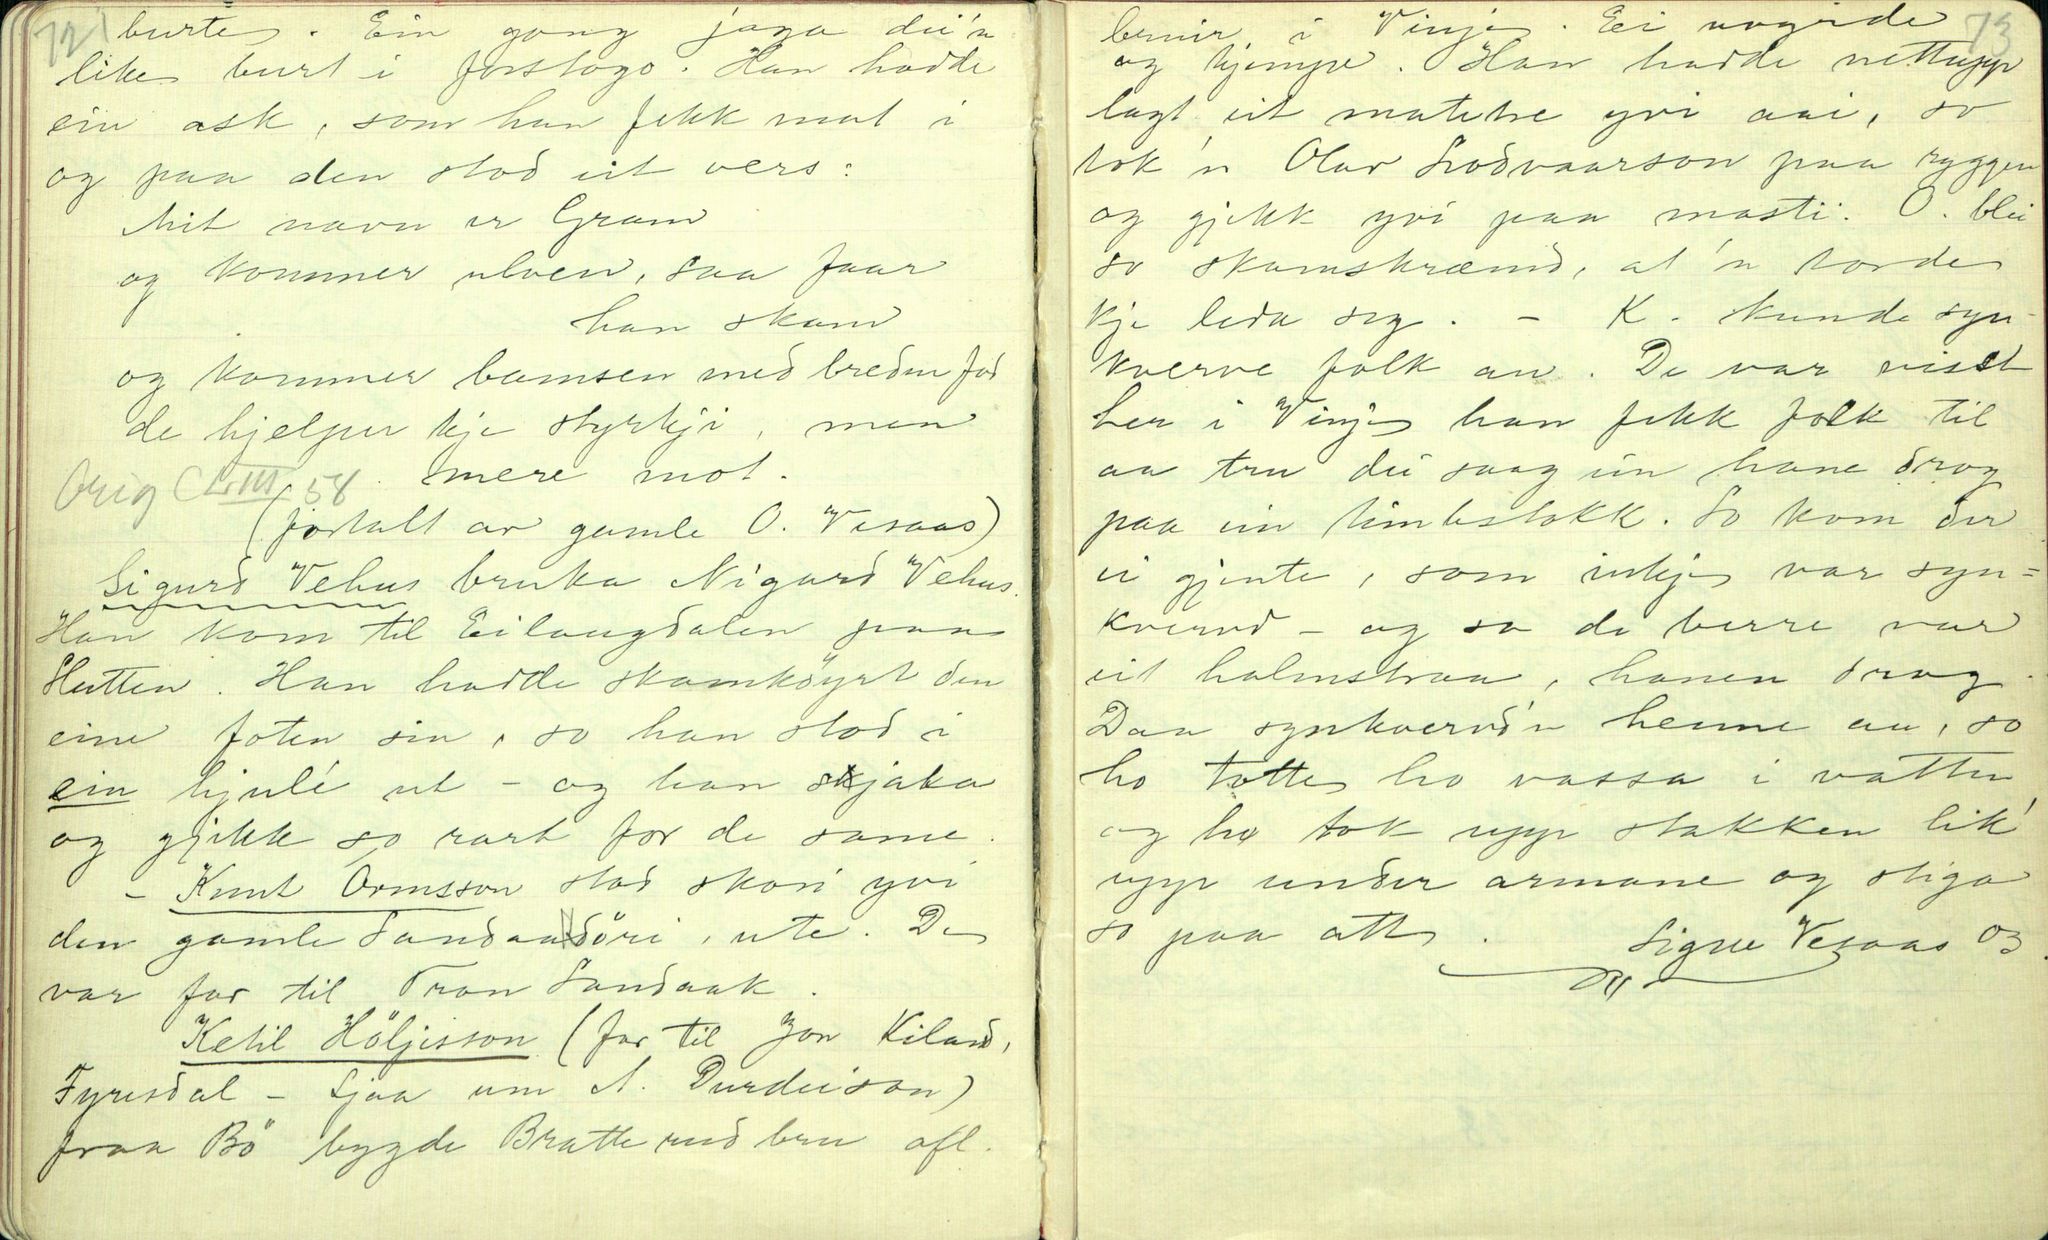 72
burte. Ein gong jaga dei'n
like burt i forstogo. Han hadde
ein ask, som han fekk mat i
og paa den stod eit vers:
Mit navn er Gram
og kommer ulven, saa faar
han skam
og kommer bamsen med breden fod
de hjelper kje styrkji, men
mere mot.
Orig CLIII 58
(fortalt av gamle O. Vesaas)
Sigurd Vehus bruka Nigard Vehus.
Han kom til Eilaugdalen paa
Slutten. Han hadde skamköyrt den
eine foten sin, so han stod i
ein hjulé ut - og han sjaka
og gjekk so rart for de same.
- Knut Ormsson stod skori yvi
den gamle Sandaadöri, ute. De
var far til Tron Sandaak.
Ketil Höljisson (far til Jon Kiland,
Fyresdal - Sjaa um A. Durdeison)
fraa Bö bygde Bratterudbru ofl.
73
bruir i Vinje. Ei
og kjempe. Han hadde nettupp
lagt eit matetre yvi aai, so
tok'n Olav Lodvaarson paa ryggen
og gjekk yvi paa masti. O. blei
so skamskræmd, at'n torde
kje leda seg. - K. kunde syn-
kverve folk au. De var visst
her i Vinje han fekk folk til
aa tru dei saag ein hane drog
paa ein timbstokk. So kom der
ei gjente, som inkje var syn=
kvervd - og sa de berre var
eit halmstraa, hanen drog.
Daa synkvervd'n henne au, so
ho totte ho vassa i vatten
og ho tok upp stakken lik'
upp under armane og stiga
so paa att. Signe Vesaas 03.